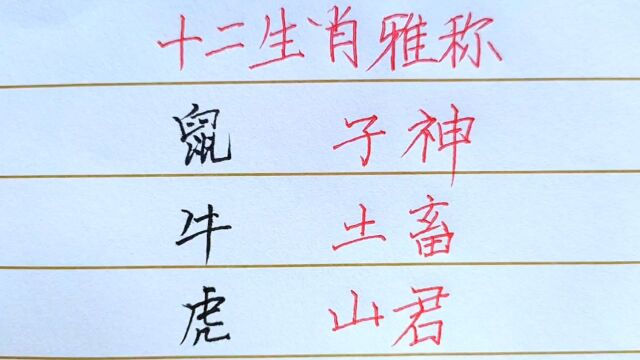 十二生肖雅称
鼠 子神
牛 土畜
虎 山君